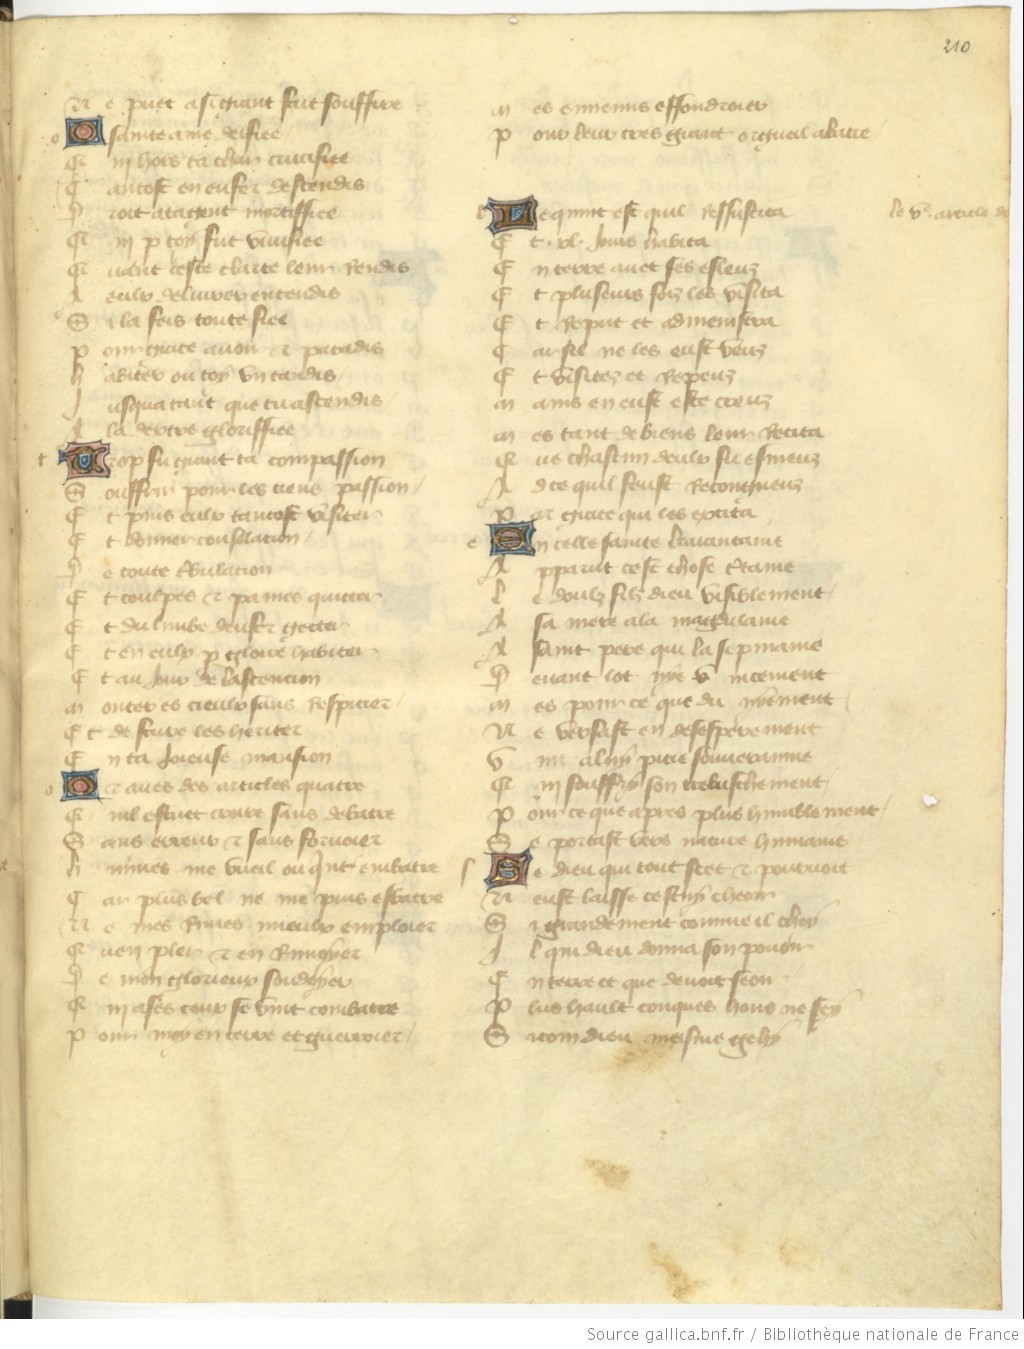 210
N e puet a si grant fait souffire
O sainte ame deifiee
Q ui hors ta char crucifiee
T antost en enfer descendis
D roit atagnent mortiffiee
Q ui p toy fut vivifiee
Q uant ceste clarte leur rendis
A eulx delivrer entendis
S i la feis toute fiee
P our grace avoir et paradis
H abiter ou toy un tandis
J usqua tant que tu ascendis
A la dextre gloriffiee
T rop fu grant ta compassion
S ouffrir pour les tiens passion
E t puis eulx tantost visiter
E t donner consolation
D e toute tribulacion
E t coulpes et pames quitter
E t du limbe denfer getter
E t en eulx p gloire habiter
E t au jour de lascencion
M onter es cieulx sans respiter
E t de scure les heriter
E n ta joieuse mansion
O r aues des articles quatre
Q uil estuet croire sans debatre
S ans erreur et sans forvoier
N mmes me vueil ou qnt embatre
C ar plus bel ne me puis esbatre
N e mes rimes mieulx emploier
Q uen pler et en rimoyer
D e mon glorieux soudoyer
Q ui a ses coux se vint combatre
P our moy en terre et guerroier
M es ennemis effondroier
P our leur tres grant orgueil abatre
L e quint est quil ressuscita
le v. article de
E t .xl. jours habita
E n terre avec ses esleuz
E t pluseurs foiz les visita
E t reput et admenistra
C ar sil ne les eust veuz
E t visitez et repeuz
M ains en eust este creuz
M es tant de biens leur recita
Q ue chascun deulx fu esmeuz
A d ce quil feust recongneuz
P ar grace qui les excita
E n celle sainte karantaine
A pparut cest chose certaine
L e doulz filz dieu visiblement
A sa mere a la magdalaine
A saint pere qui la sepmaine
D euant lot
M es pour ce que du
N e versast en desesperement
V int alui pitie souueraine
Q ui souffry son trebuschement
P our ce que apres plus humblement
S e portast vers nature humaine
S e dieu qui tout scet et pourvoit
N eust laisse cestui cheoir
S i grandement comme il chey
J l qui dieu donna son pouoir
E n terre et que devoit seoir
P lus hault conques hons ne sey
S i com dieu meisme gehy